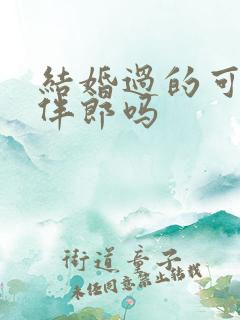 結婚過的可
伴郎吗
街道童子
未经同意禁止转载